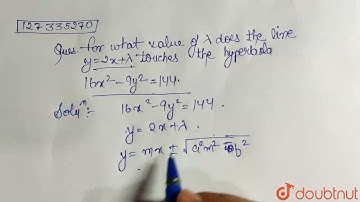 127335270
Ques- for what value of λ does the line
y=2x+λ touches the hyperbola
16x²-9y²=144.
Solyⁿ:- 16x²-9y²=144.
y=2x+λ.
y=mx±√a²m²-b²
doubtnut